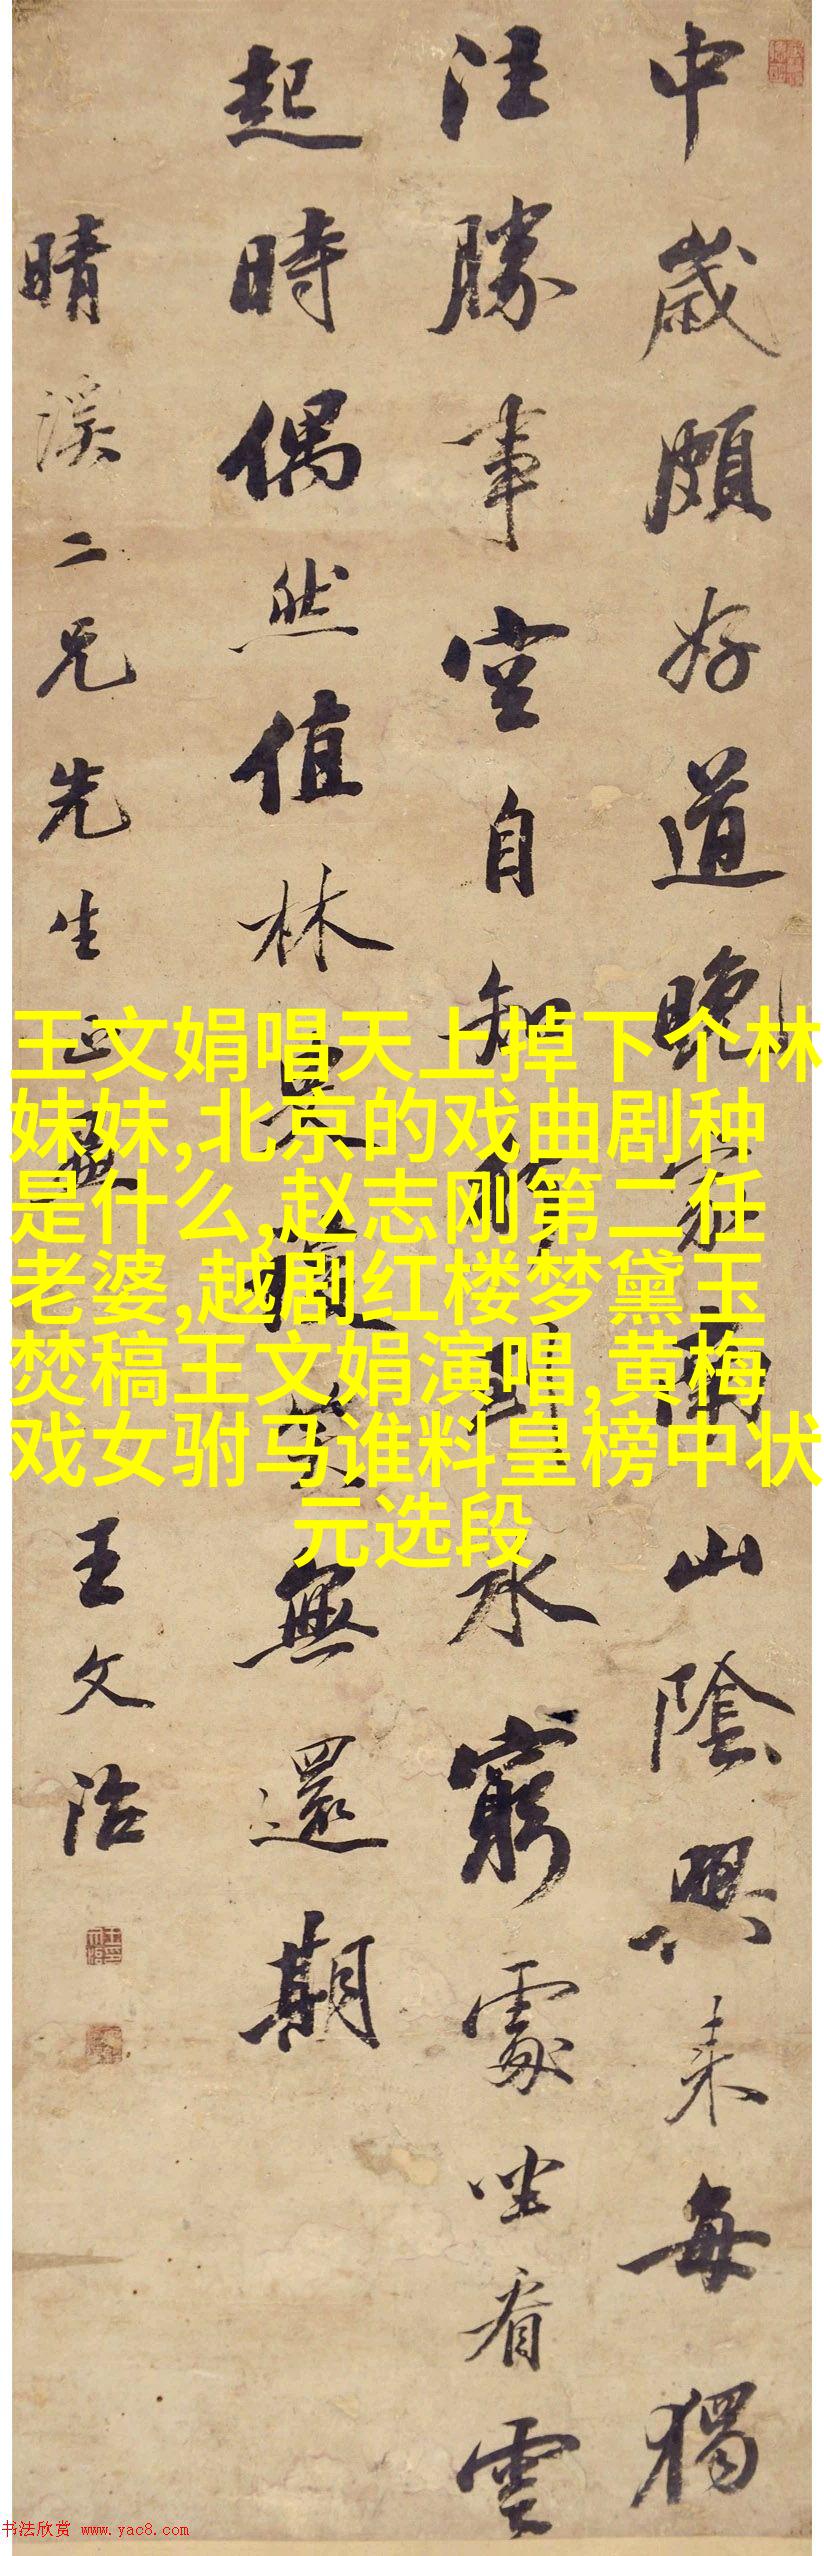 中歲頗好道晚家南山陰興來每獨
往勝事空自知行到水窮處坐看雲
起時偶然值林叟談笑無還期
晴溪二兄先生正 王文治
王文娟唱天上掉下个林
妹妹,北京的戏曲剧种
是什么,赵志刚第二任
老婆,越剧红楼梦黛玉
焚稿王文娟演唱,黄梅
戏女驸马谁料皇榜中状
元选段
书法欣赏 www.yac8.com